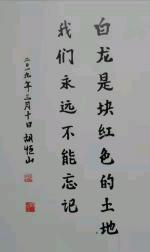 白龙是块红色的土地
我们永远不能忘记
二〇一九年三月十日 胡恒山